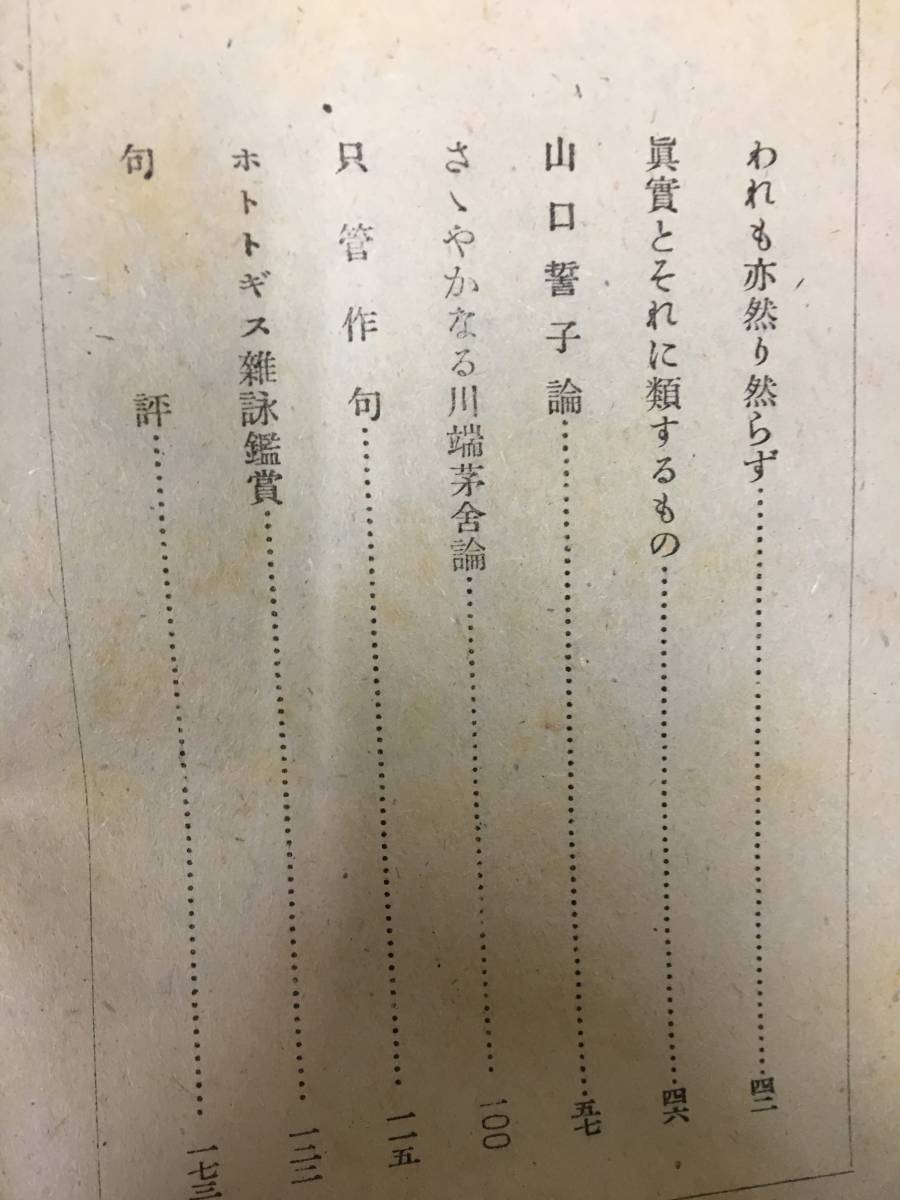 われも亦然り然らず……四二
眞實とそれに類するもの……四六
山口誓子論……五七
さゝやかなる川端茅舍論……一〇〇
只管作句……一一五
ホトトギス雜詠鑑賞……一二二
句評……一七三